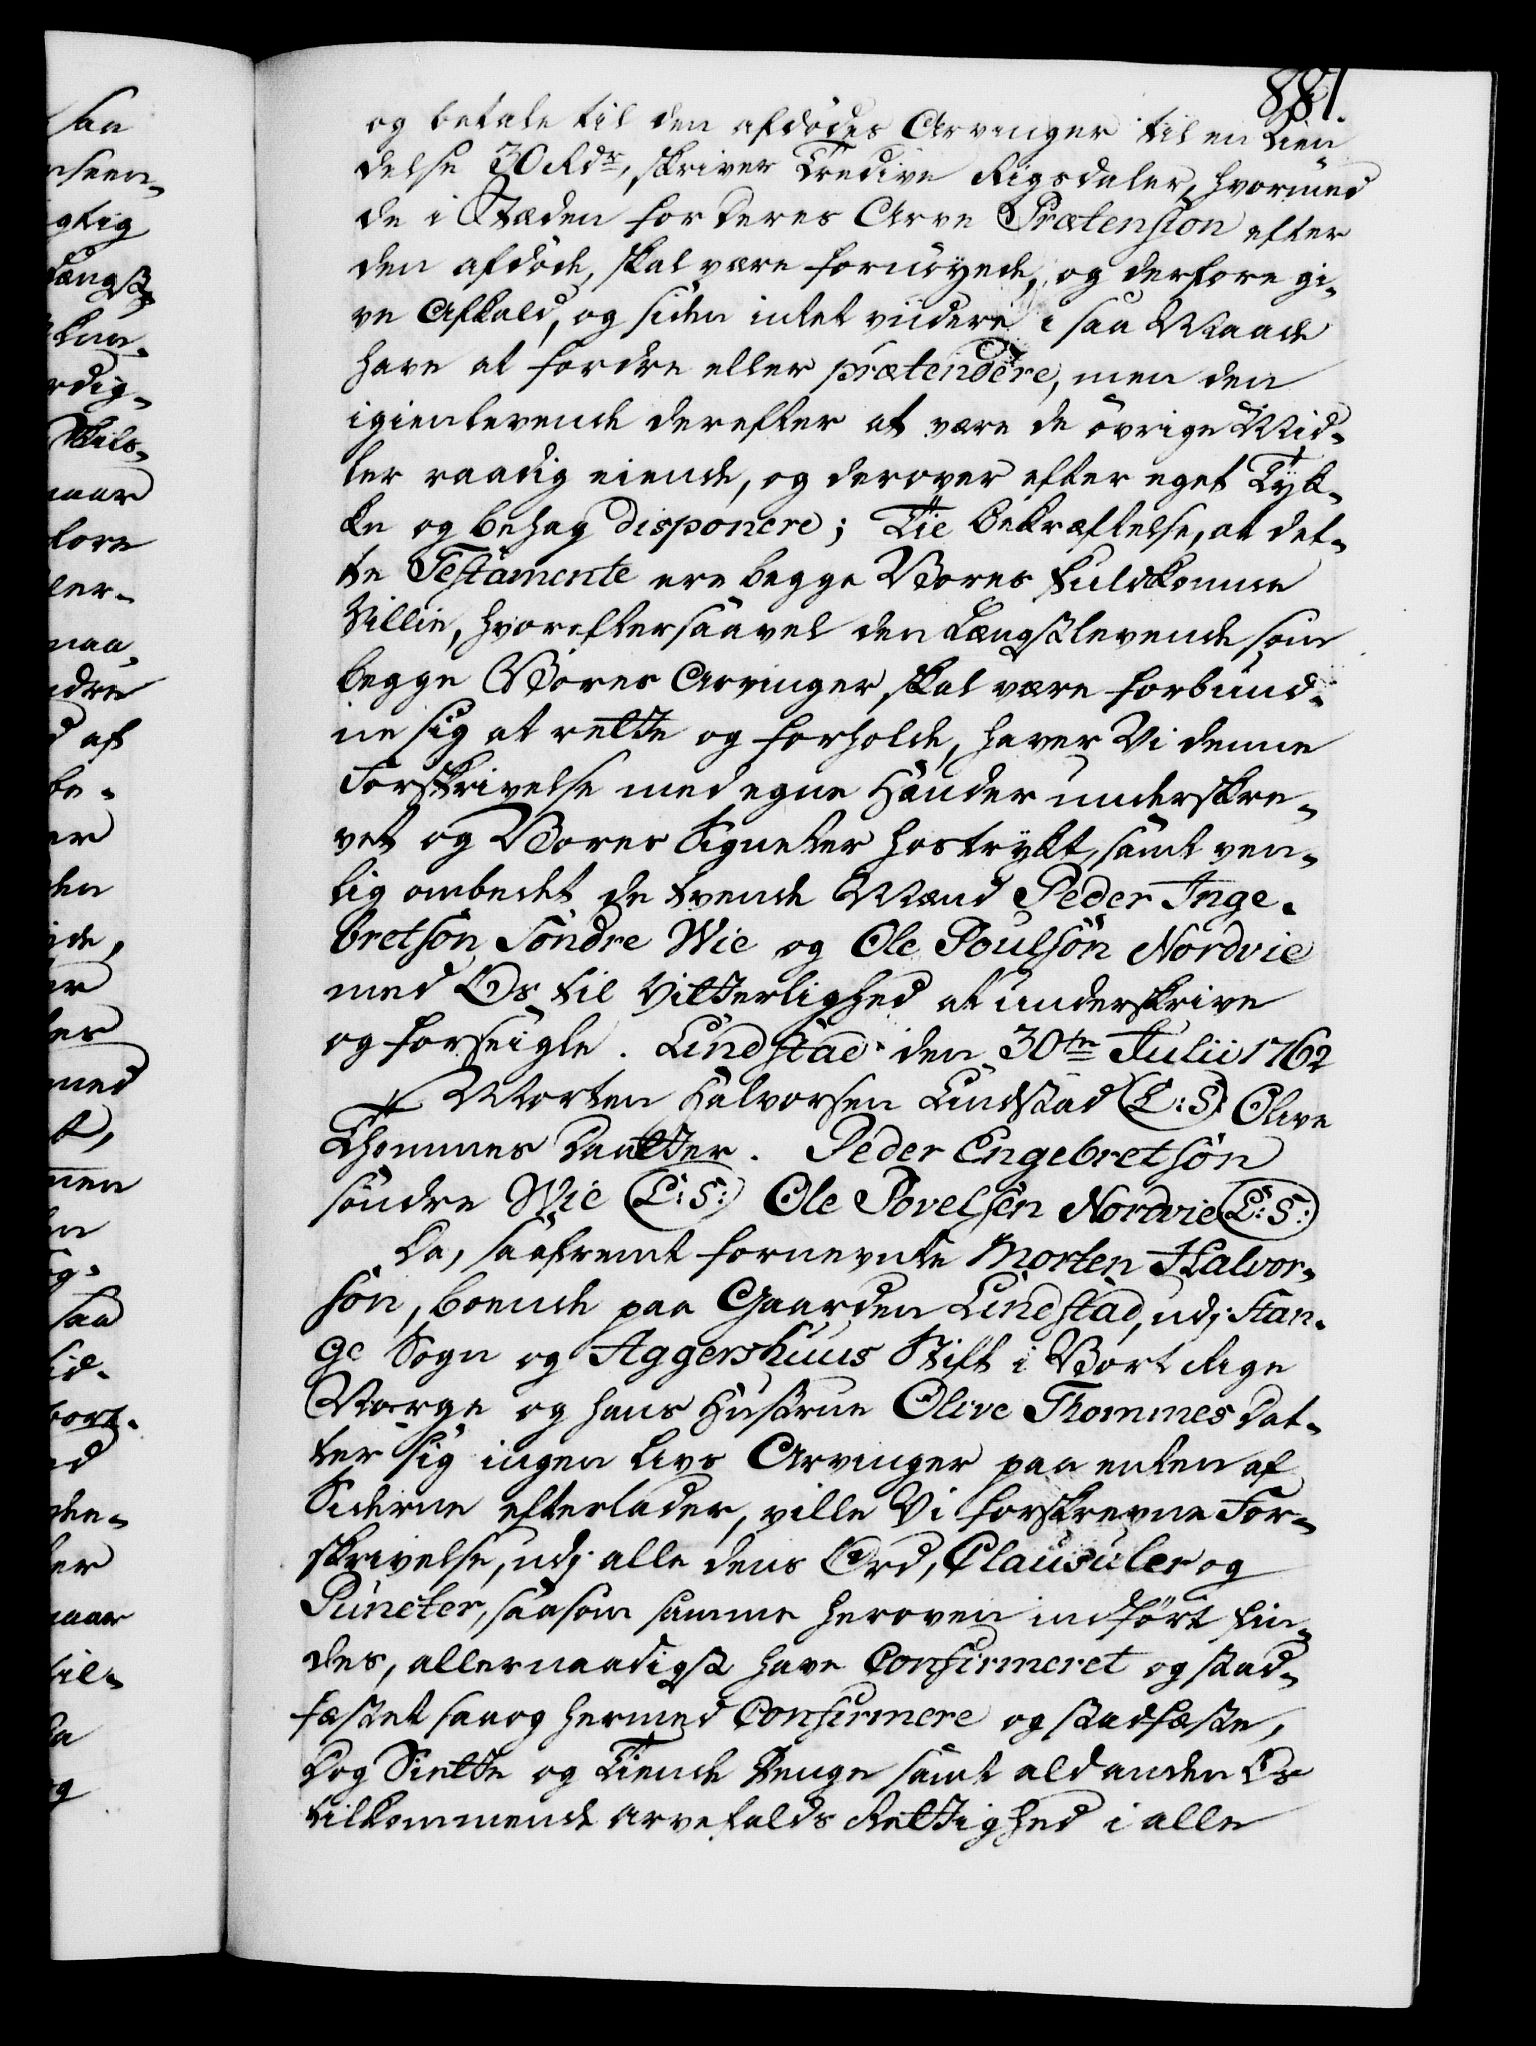 881.
og betale til den afdødes Arvinger til en Kien-
delse 30 Rdr, skriver Tredive Rigsdaler, hvormed
de i Stæden for deres Arve Prætension efter
den afdøde, skal være fornøyede, og derfore gi-
ve Afkald, og siden intet viidere i saa Maade
have at fordre eller prætendere, men den
igienlevende derefter at være de øvrige Mid-
ler raadig eiende, og derover efter eget Tyk-
ke og behag disponere; Til Bekræftelse, at det-
te Testamente ere begge Vores fuldkomne
Villie, hvorefter saavel den Længstlevende som
begge Vores Arvinger, skal være forbund-
ne sig at rette og forholde, haver Vi denne
Forskrivelse med egne Hænder underskre-
vet og Vores Signeter hostrykt, samt ven-
lig ombedet de tvende Mænd Peder Inge-
bretsøn Søndre Wie og Ole Poulsøn Nordvie
med Os til Vitterlighed at underskrive
og forseigle. Lindstad den 30te Julii 1762
Morten Halvorsen Lindstad (L:S:) Olive
Thommes Daatter. Peder Engebretsøn
søndre Wie (L:S:) Ole Povelsen Nordvie (L:S:)
Da, saafremt fornevnte Morten Halvor-
søn, boende paa Gaarden Lindstad, udj Stan-
ge Sogn og Aggershuus Stift i Vort Rige
Norge og hans Hustrue Olive Thommes Dat-
ter sig ingen Livs Arvinger paa enten af
Siderne efterlader, ville Vi forskrevne For-
skrivelse, udj alle dens Ord, Clausuler og
Puncter, saasom samme heroven indført fin-
des, allernaadigst have Confirmeret og stad-
fæstet saa og hermed Confirmere og stadfæste,
Dog Siette og Tiende Penge samt ald anden Os
tilkommende Arvefalds Rettighed i alle